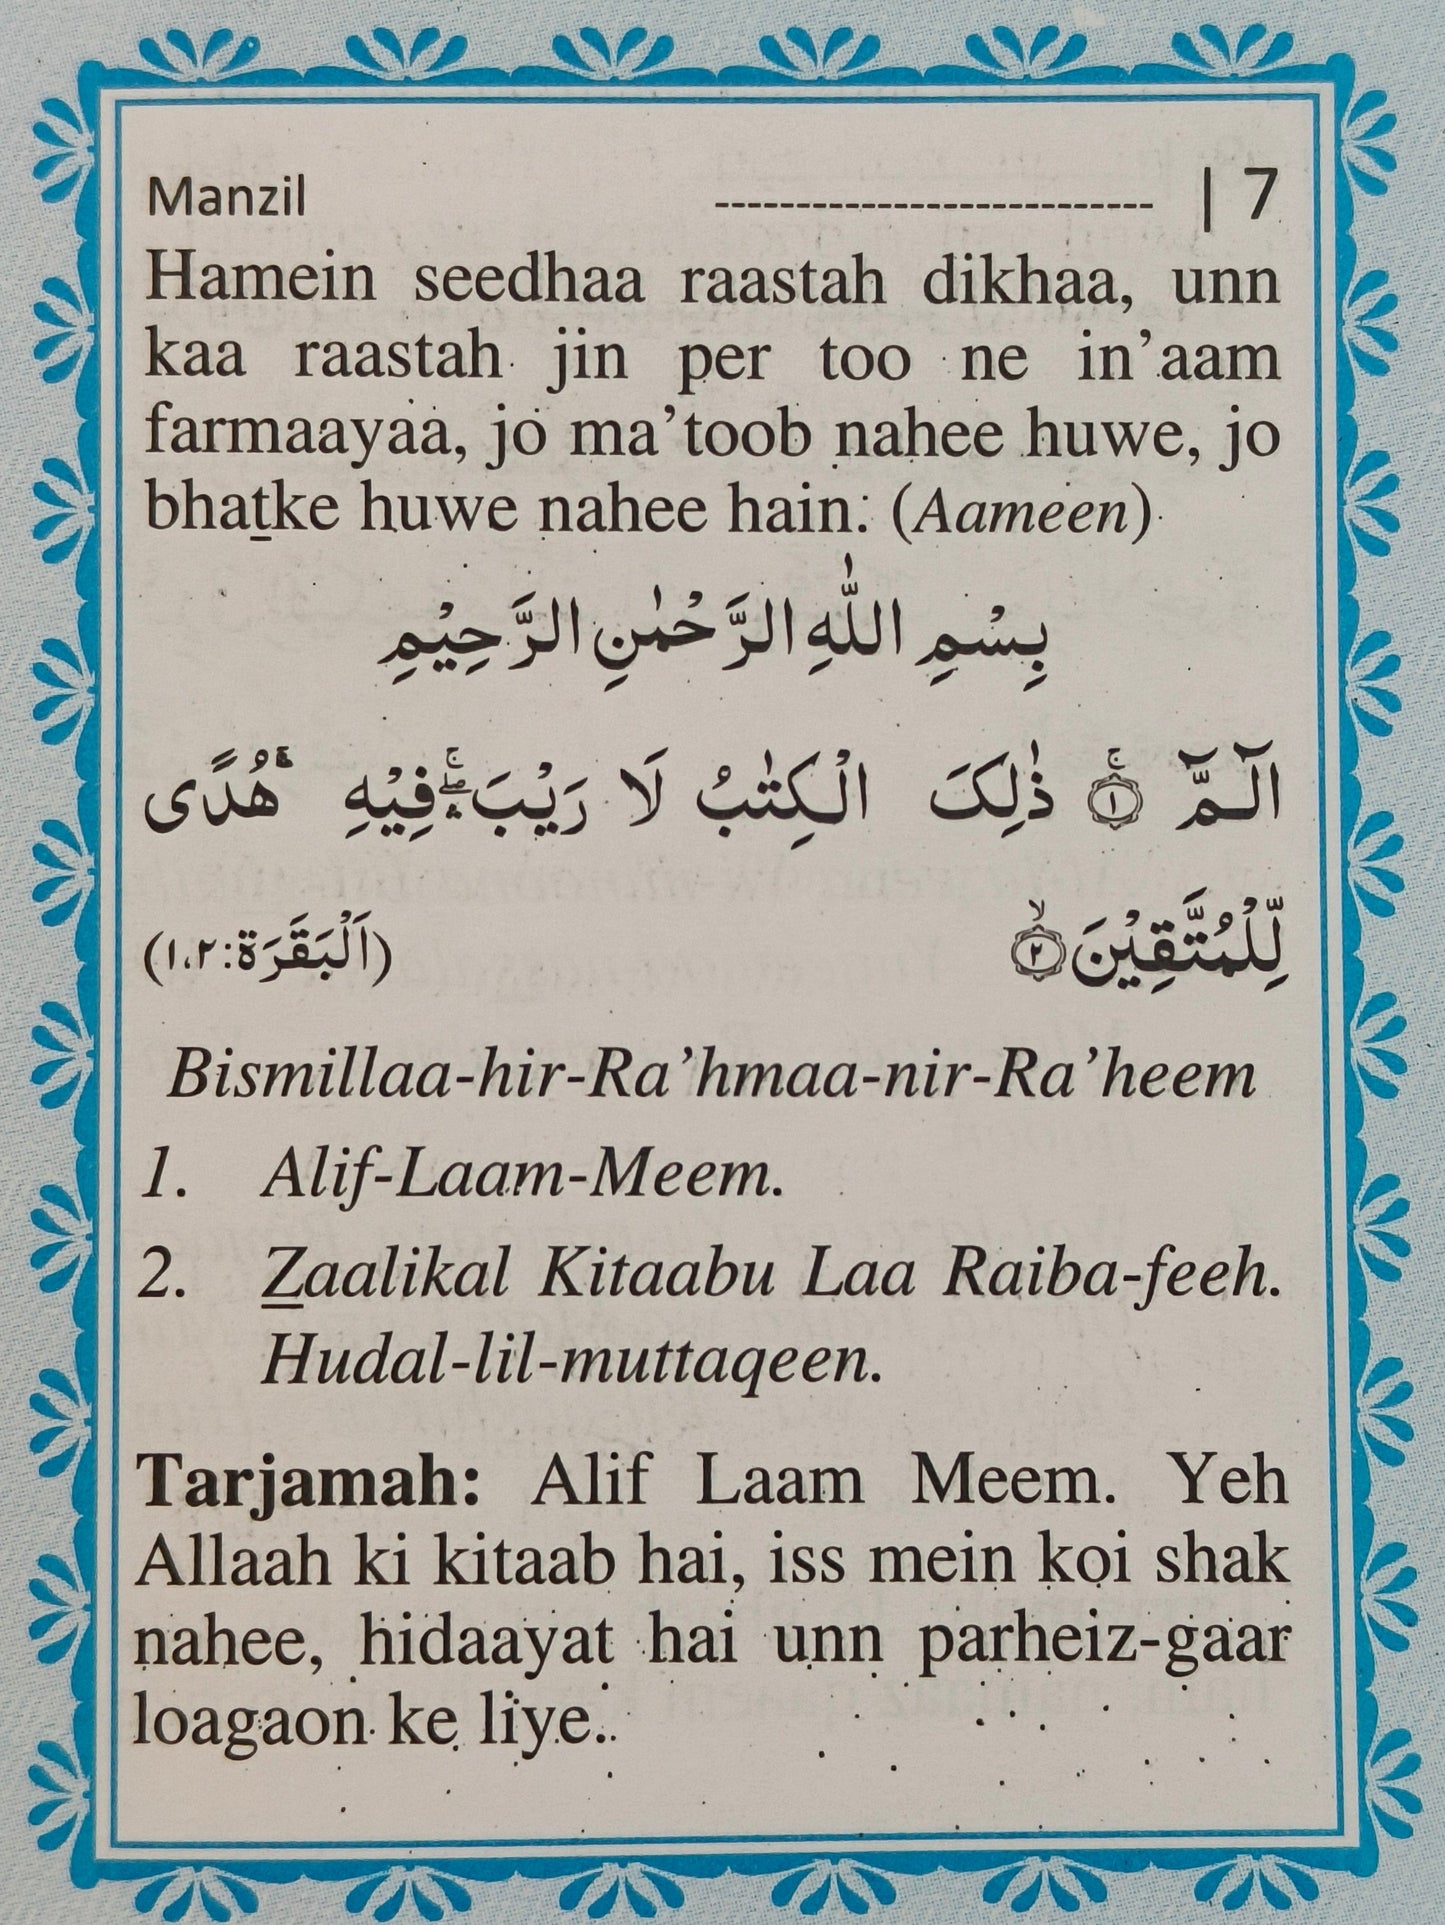 Manzil --------------------------- | 7
Hamein seedhaa raastah dikhaa, unn
kaa raastah jin per too ne in’aam
farmaayaa, jo ma’toob nahee huwe, jo
bhaṯke huwe nahee hain. (Aameen)
بِسْمِ اللّٰهِ الرَّحْمٰنِ الرَّحِيْمِ
الٓـمّٓ ۚ﴿۱﴾ ذٰلِكَ الْكِتٰبُ لَا رَيْبَ ۛۖۚ فِيْهِ ۛۚ هُدًى
لِّلْمُتَّقِيْنَ ۙ﴿۲﴾ (اَلْبَقَرَة:۱،۲)
Bismillaa-hir-Ra’hmaa-nir-Ra’heem
1. Alif-Laam-Meem.
2. Z̲aalikal Kitaabu Laa Raiba-feeh.
Hudal-lil-muttaqeen.
Tarjamah: Alif Laam Meem. Yeh
Allaah ki kitaab hai, iss mein koi shak
nahee, hidaayat hai unn parheiz-gaar
loagaon ke liye.